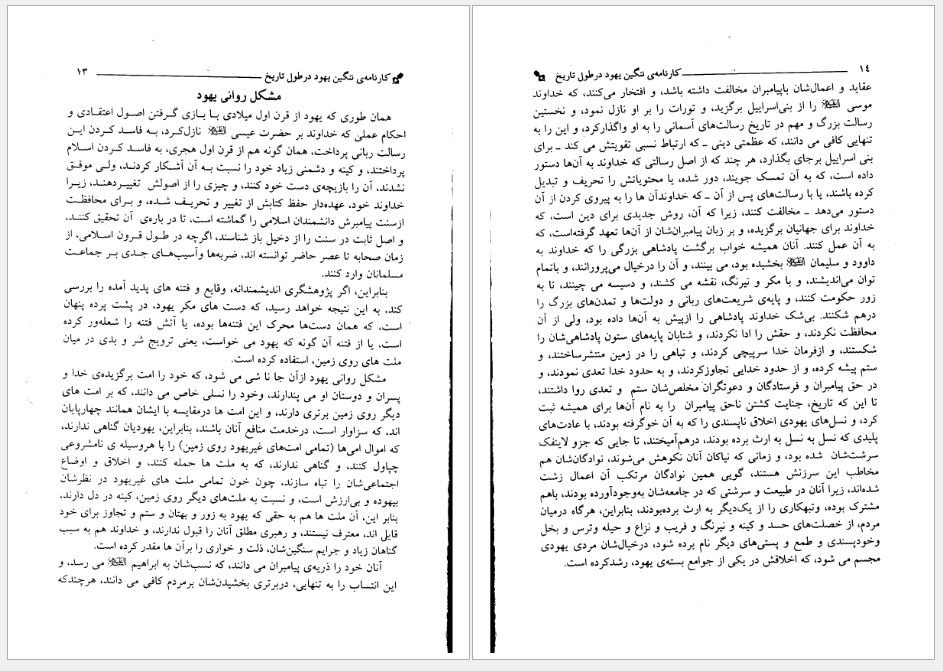 کارنامه‌ی ننگین یهود در طول تاریخ ۱۳
مشکل روانی یهود
همان طوری که یهود از قرن اول میلادی با بازی گرفتن اصول اعتقادی و
احکام عملی که خداوند بر حضرت عیسی نازل‌کرد، به فاسد کردن این
رسالت ربانی پرداخت، همان گونه هم از قرن اول هجری، به فاسد کردن اسلام
پرداختند، و کینه و دشمنی زیاد خود را نسبت به آن آشکار کردند، ولی موفق
نشدند، آن را بازیچه‌ی دست خود کنند، و چیزی را از اصولش تغییردهند، زیرا
خداوند خود، عهده‌دار حفظ کتابش از تغییر و تحریف شده، و برای محافظت
ازسنت پیامبرش دانشمندان اسلامی را گماشته است، تا در باره‌ی آن تحقیق کنند،
و اصل ثابت در سنت را از دخیل باز شناسند، اگرچه در طول قرون اسلامی، از
زمان صحابه تا عصر حاضر توانسته اند، ضربه‌ها وآسیب‌های جدی بر جماعت
مسلمانان وارد کنند.
بنابراین، اگر پژوهشگری اندیشمندانه، وقایع و فتنه های پدید آمده را بررسی
کند، به این نتیجه خواهد رسید، که دست های مکر یهود، در پشت پرده پنهان
است، که همان دست‌ها محرک این فتنه‌ها بوده، یا آتش فتنه را شعله‌ور کرده
است، یا از فتنه آن گونه که یهود می خواست، یعنی ترویج شر و بدی در میان
ملت های روی زمین، استفاده کرده است.
مشکل روانی یهود ازآن جا نا شی می شود، که خود را امت برگزیده‌ی خدا و
پسران و دوستان او می پندارند، وخود را نسلی خاص می دانند، که بر امت های
دیگر روی زمین برتری دارند، و این امت ها درمقایسه با ایشان همانند چهارپایان
اند، که سزاوار است، درخدمت منافع آنان باشند، بنابراین، یهودیان گناهی ندارند،
که اموال امی‌ها (تمامی امت‌های غیریهود روی زمین) را با هروسیله ی نامشروعی
چپاول کنند، و گناهی ندارند، که به ملت ها حمله کنند، و اخلاق و اوضاع
اجتماعی‌شان را تباه سازند، چون خون تمامی ملت های غیریهود در نظرشان
بیهوده و بی‌ارزش است، و نسبت به ملت‌های دیگر روی زمین، کینه در دل دارند،
بنابر این، آن ملت ها هم به حقی که یهود به زور و بهتان و ستم و تجاوز برای خود
قایل اند، معترف نیستند، و رهبری مطلق آنان را قبول ندارند، و خداوند هم به سبب
گناهان زیاد و جرایم سنگین‌شان، ذلت و خواری را برآن ها مقدر کرده است.
آنان خود را ذریه‌ی پیامبران می دانند، که نسب‌شان به ابراهیم می رسد، و
این انتساب را به تنهایی، دربرتری بخشیدن‌شان برمردم کافی می دانند، هرچندکه
۱٤ کارنامه‌ی ننگین یهود در طول تاریخ
عقاید و اعمال‌شان باپیامبران مخالفت داشته باشد، و افتخار می‌کنند، که خداوند
موسی را از بنی‌اسراییل برگزید، و تورات را بر او نازل نمود، و نخستین
رسالت بزرگ و مهم در تاریخ رسالت‌های آسمانی را به او واگذارکرد، و این را به
تنهایی کافی می دانند، که عظمتی دینی ـ که ارتباط نسبی تقویتش می کند ـ برای
بنی اسراییل برجای بگذارد، هر چند که از اصل رسالتی که خداوند به آن‌ها دستور
داده است، که به آن تمسک جویند، دور شده، یا محتویاتش را تحریف و تبدیل
کرده باشند، یا با رسالت‌های پس از آن ـ که خداوندآن ها را به پیروی کردن از آن
دستور می‌دهد ـ مخالفت کنند، زیرا که آن، روش جدیدی برای دین است، که
خداوند برای جهانیان برگزیده، و بر زبان پیامبران‌شان از آن‌ها تعهد گرفته‌است، که
به آن عمل کنند. آنان همیشه خواب برگشت پادشاهی بزرگی را که خداوند به
داوود و سلیمان بخشیده بود، می بینند، و آن را درخیال می‌پرورانند، و باتمام
توان می‌اندیشند، و با مکر و نیرنگ، نقشه می کشند، و دسیسه می چینند، تا به
زور حکومت کنند، و پایه‌ی شریعت‌های ربانی و دولت‌ها و تمدن‌های بزرگ را
درهم شکنند. بی‌شک خداوند پادشاهی را ازپیش به آن‌ها داده بود، ولی از آن
محافظت نکردند، و حقش را ادا نکردند، و شتابان پایه‌های ستون پادشاهی‌شان را
شکستند، و ازفرمان خدا سرپیچی کردند، و تباهی را در زمین منتشرساختند، و
ستم پیشه کرده، و از حدود خدایی تجاوزکردند، و به حدود خدا تعدی نمودند، و
در حق پیامبران و فرستادگان و دعوتگران مخلص‌شان ستم و تعدی روا داشتند،
تا این که تاریخ، جنایت کشتن ناحق پیامبران را به نام آن‌ها برای همیشه ثبت
کرد، و نسل‌های یهودی اخلاق ناپسندی را که به آن خوگرفته بودند، با عادت‌های
پلیدی که نسل به نسل به ارث برده بودند، درهم‌آمیختند، تا جایی که جزو لاینفک
سرشت‌شان شده بود، و زمانی که نیاکان آنان نکوهش می‌شوند، نوادگان‌شان هم
مخاطب این سرزنش هستند، گویی همین نوادگان مرتکب آن اعمال زشت
شده‌اند، زیرا آنان در طبیعت و سرشتی که در جامعه‌شان به‌وجودآورده بودند، باهم
مشترک بوده، وتبهکاری را از یک‌دیگر به ارث برده‌بودند، بنابراین، هرگاه درمیان
مردم، از خصلت‌های حسد و کینه و نیرنگ و فریب و نزاع و حیله وترس و بخل
وخودپسندی و طمع و پستی‌های دیگر نام برده شود، درخیال‌شان مردی یهودی
مجسم می شود، که اخلاقش در یکی از جوامع بسته‌ی یهود، رشدکرده است.